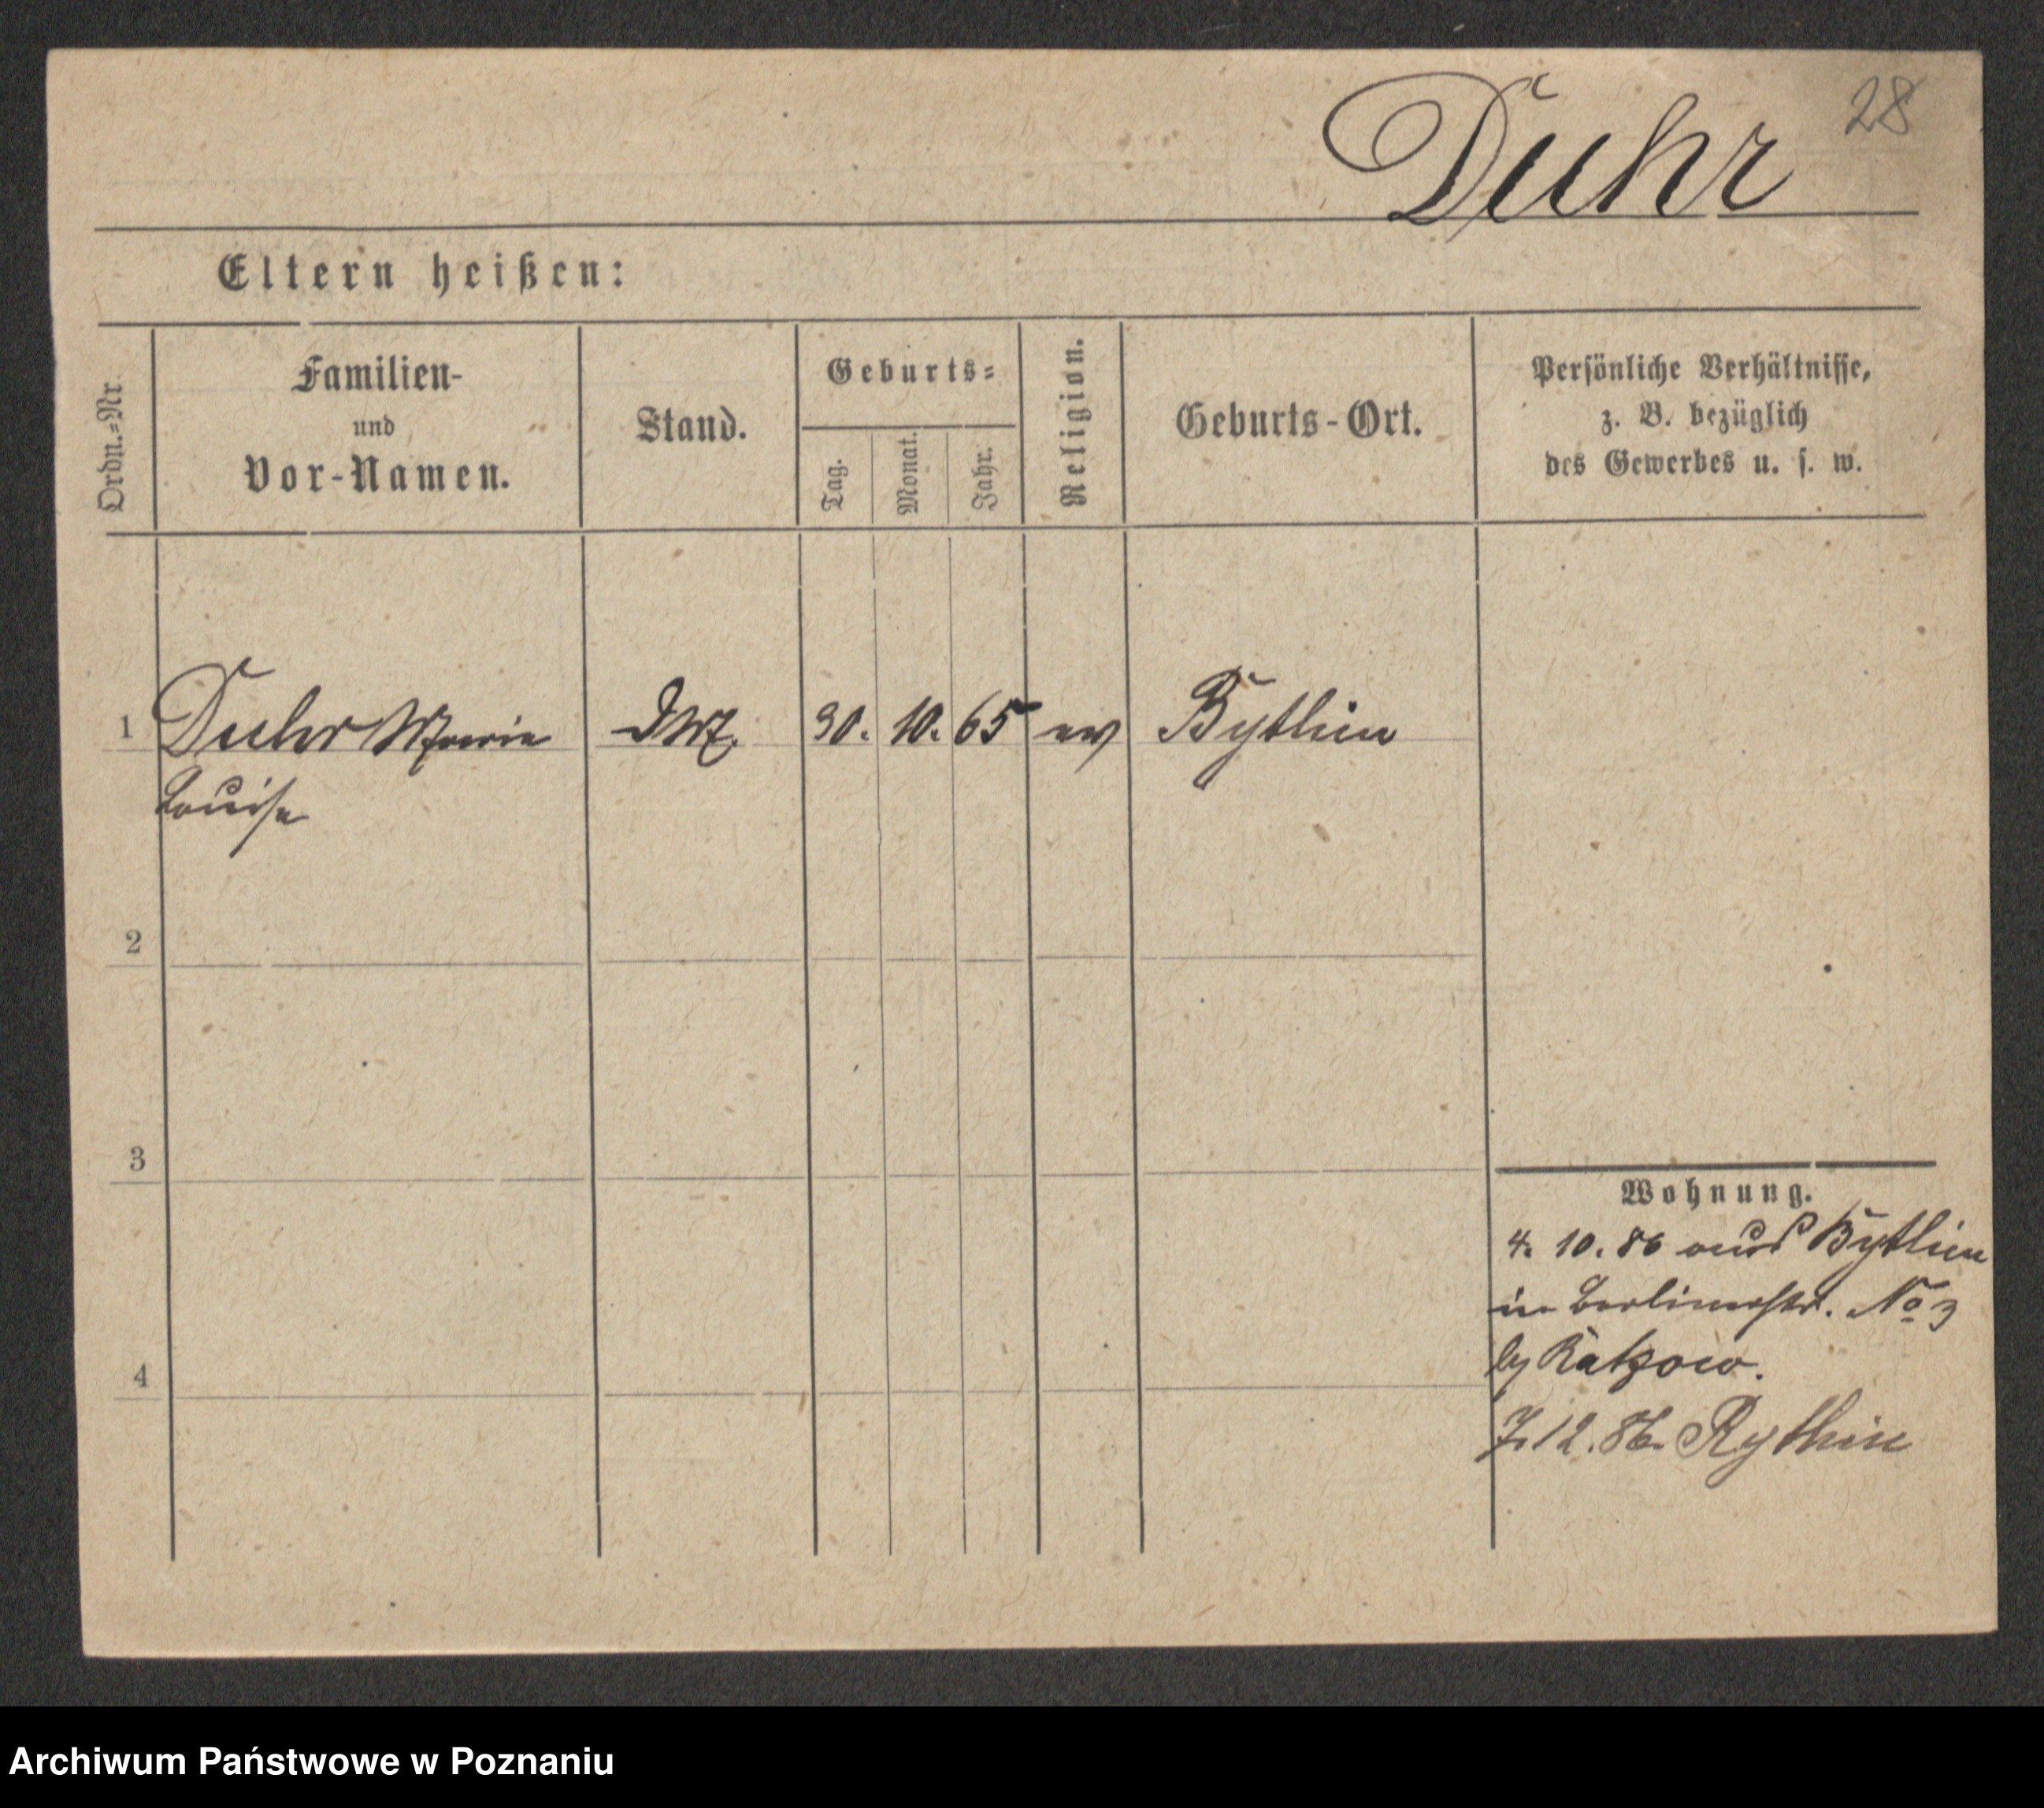 Duhr 28
Eltern heißen:
Ordn.-Nr.
Familien-
und
Vor-Namen.
Stand.
Geburts-
Tag.
Monat.
Jahr.
Religion.
Geburts-Ort.
Persönliche Verhältnisse,
z. B. bezüglich
des Gewerbes u. s. w.
1 Duhr Marie 30. 10. 65 ev Bythin
Louise
2
3
4
Wohnung.
4. 10. 86 aus Bythin
in Berlinerstr. No 3
by Ratzow.
7. 12. 86. Bythin
Archiwum Państwowe w Poznaniu